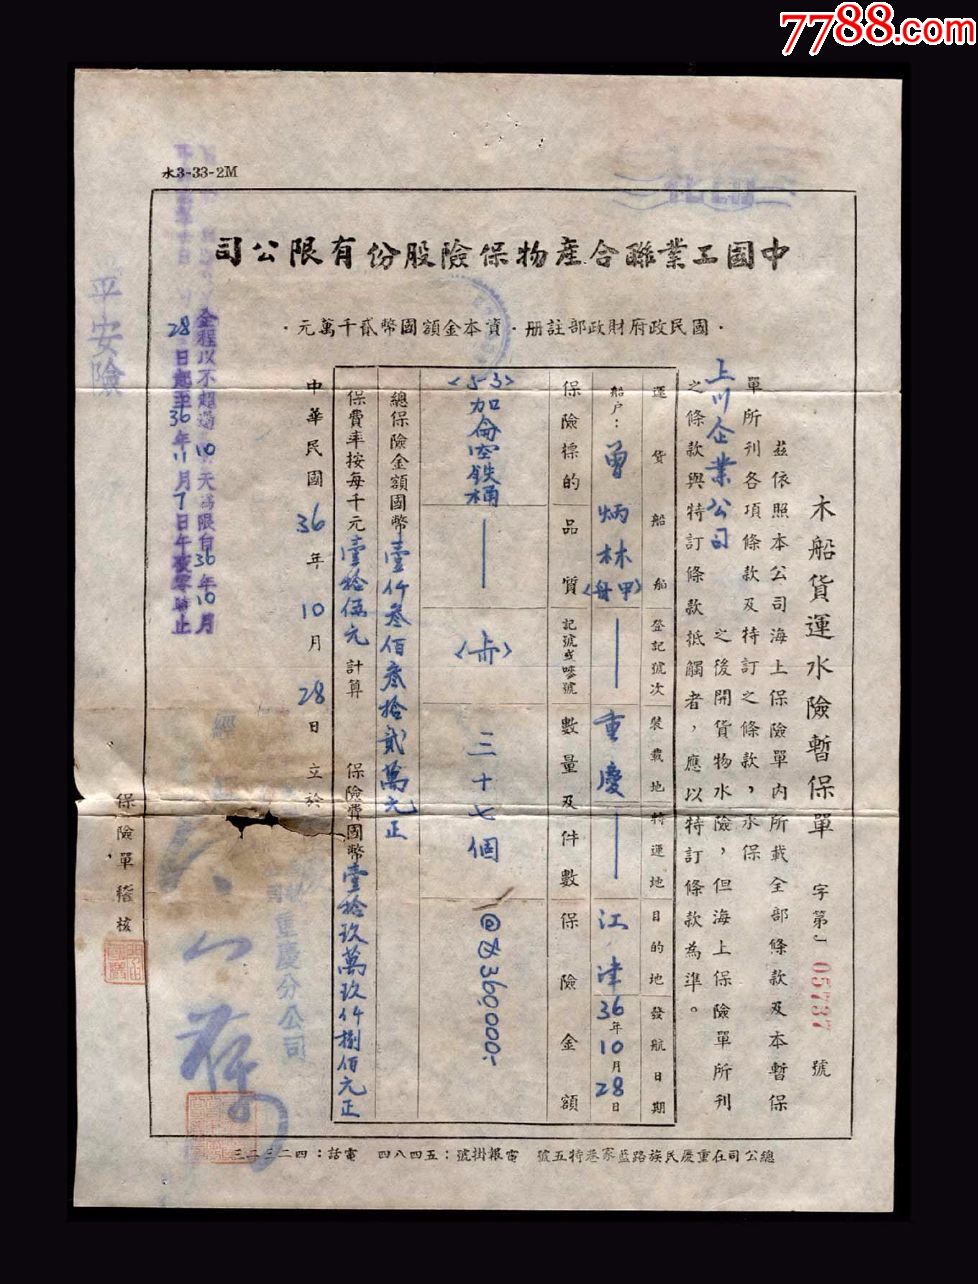 7788.com
水3-33-2M
中國工業聯合產物保險股份有限公司
·國民政府財政部註册·資本金額國幣貳千萬元·
木船貨運水險暫保單 字第J 05737 號
茲依照本公司海上保險單內所載全部條款及本暫保
單所刊各項條款及特訂之條款,水保
上川企業公司 之後開貨物水險,但海上保險單所刊
之條款與特訂條款抵觸者,應以特訂條款為準。
運貨船 船登記號次 裝載地 特運地 目的地 發航日期
船户:曾炳林(舟甲) 重慶 江津 36年10月28日
保險標的品質 記號或嘜號 數量及件數 保險金額
<53>加侖空鉄桶 三十七個 @ 360,000:-
總保險金額國幣壹仟叁佰叁拾貳萬元正
保費率按每千元壹拾伍元計算 保險費國幣壹拾玖萬玖仟捌佰元正
中華民國36年10月28日立於
重慶分公司
經
全程以不超過10天為限自36年10月
28日起至36年11月7日午夜零時止
平安險
保險單稽核
總公司在重慶民族路藍家巷特五號 電報掛號:五四八四 電話:四二三二三